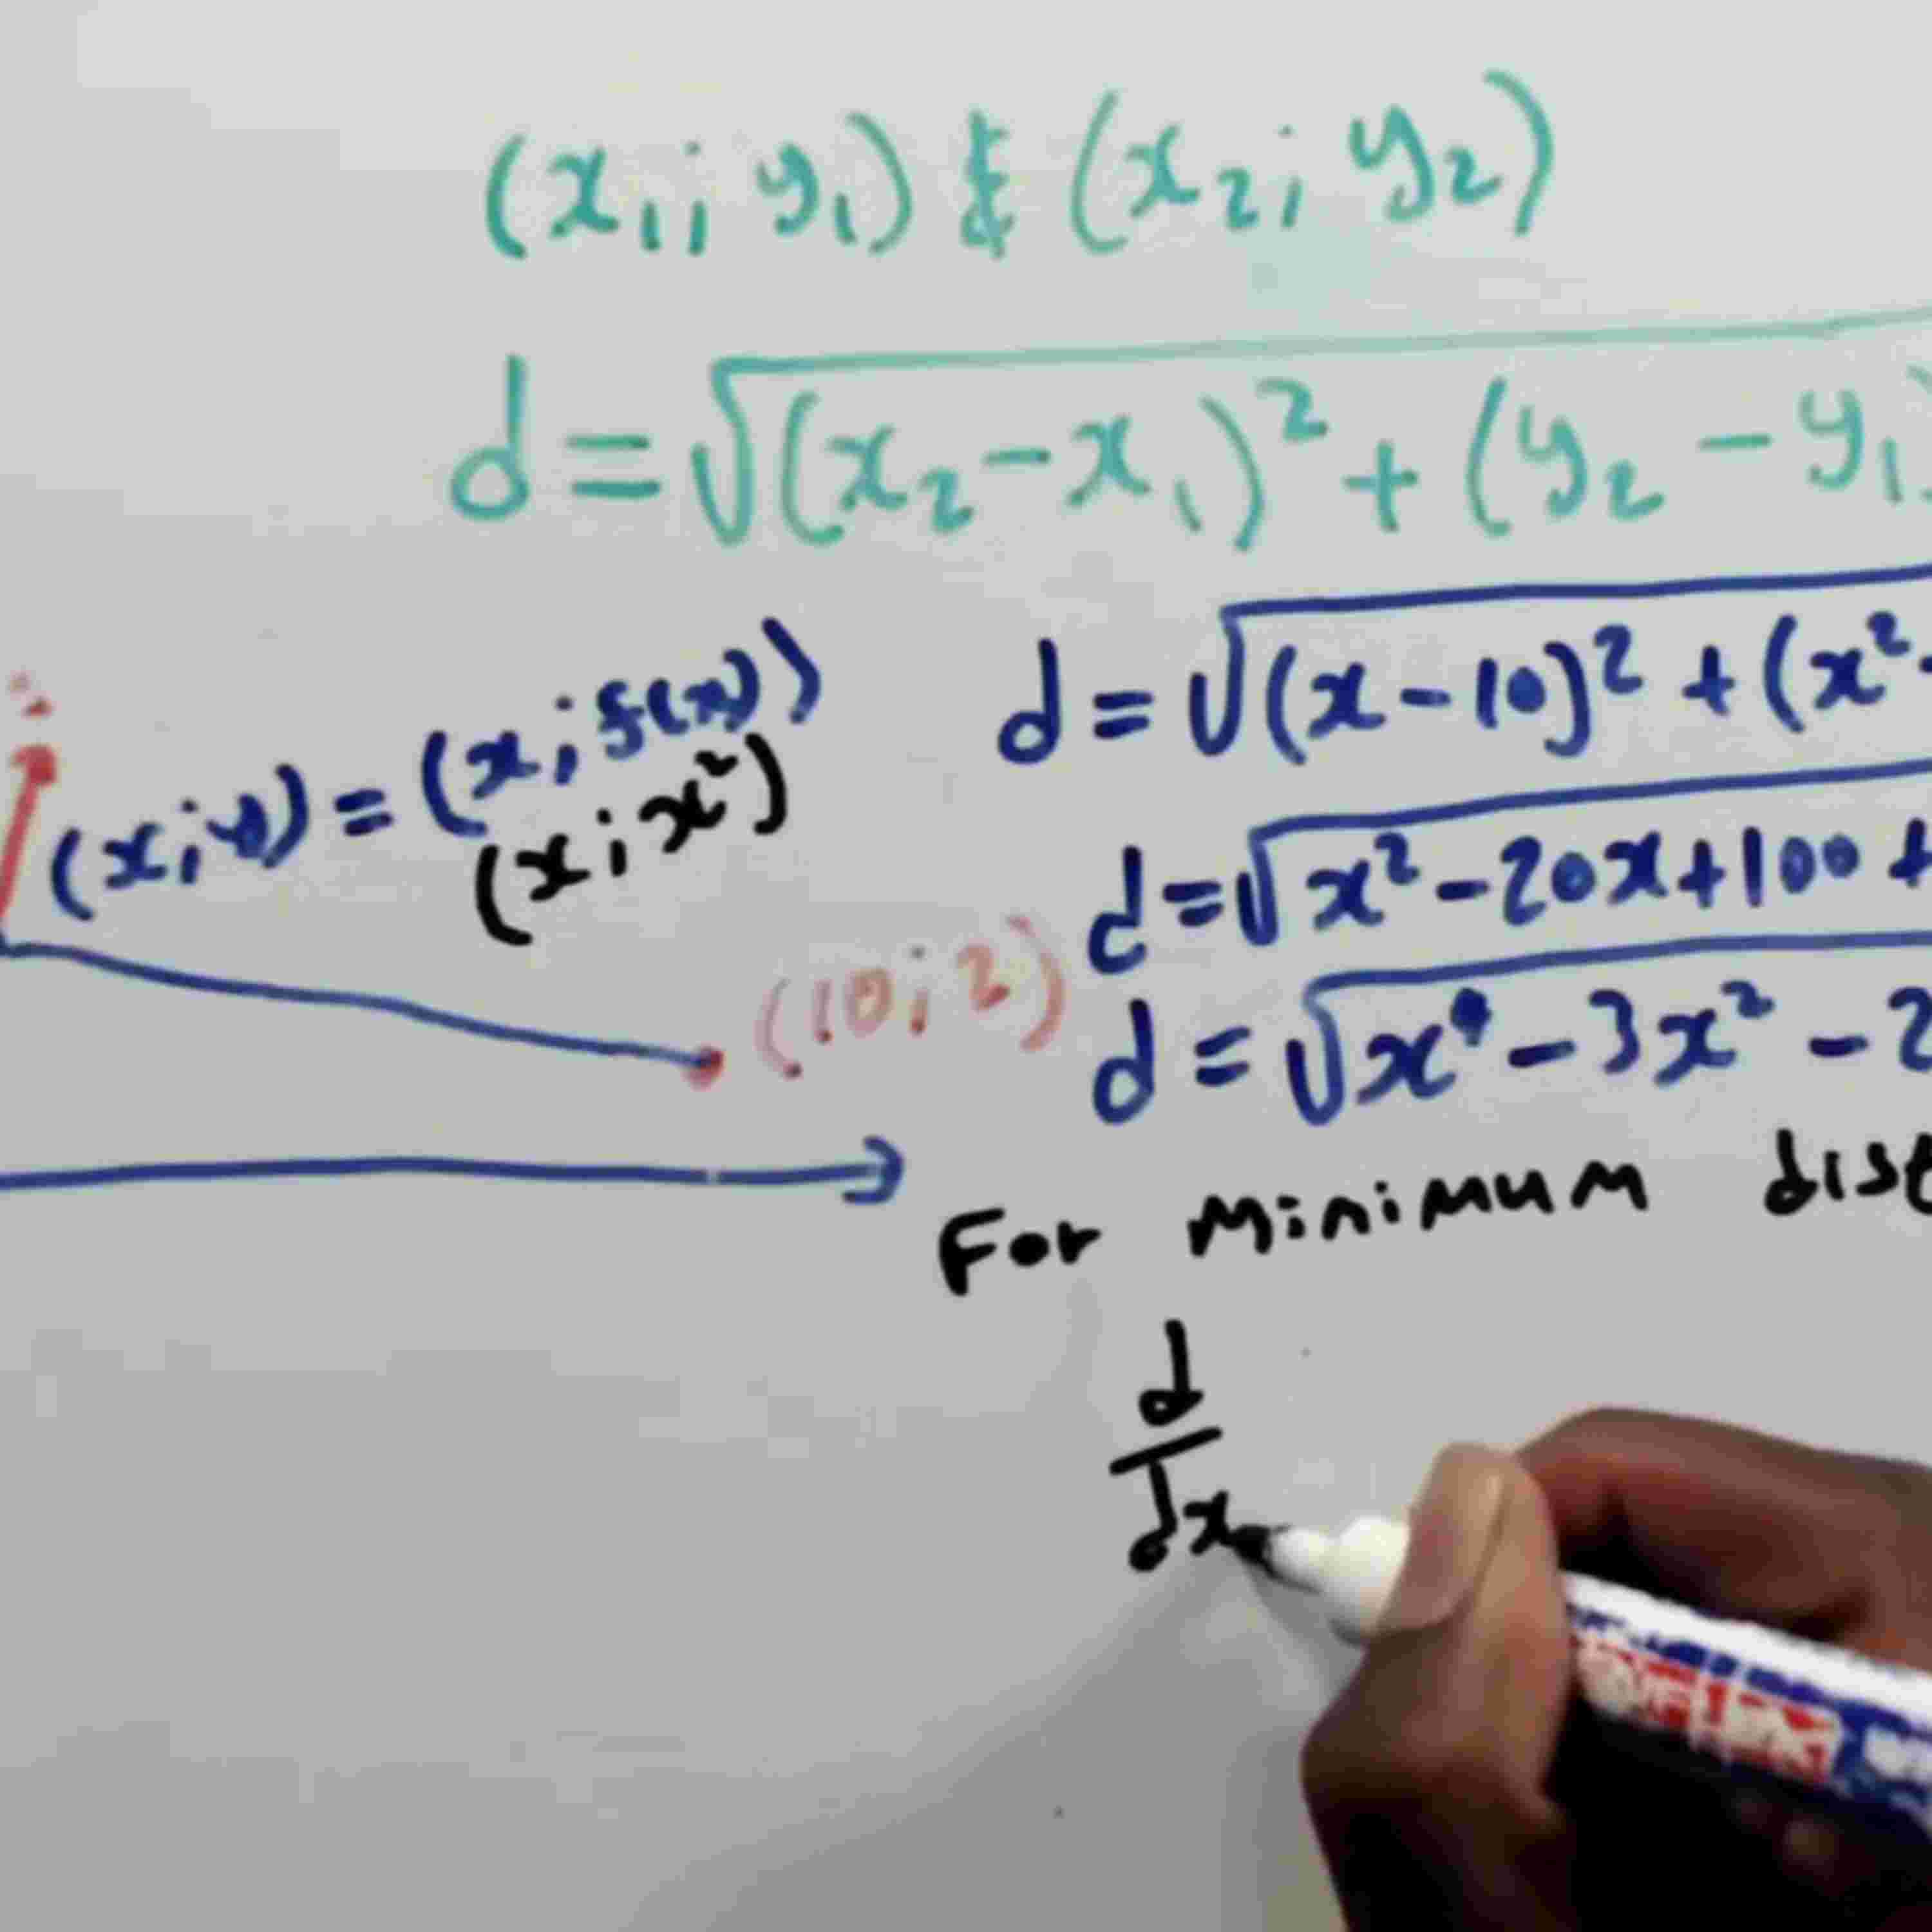 (x₁; y₁) & (x₂; y₂)
d = √(x₂ - x₁)² + (y₂ - y₁)
(x; y) = (x; f(x))
(x; x²)
(10; 2)
d = √(x - 10)² + (x² -
d = √x² - 20x + 100 +
d = √x⁴ - 3x² - 2
For minimum dist
d
dx